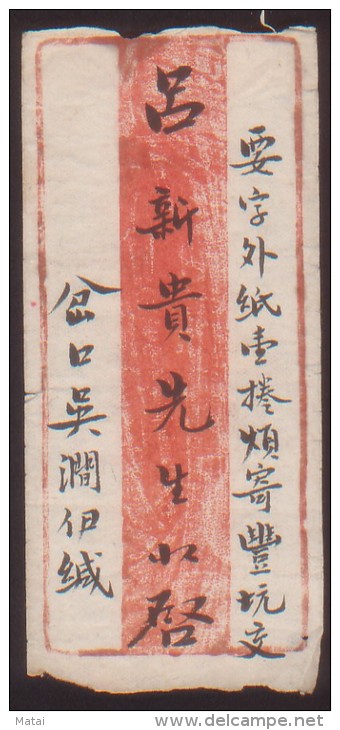 要字外紙壹捲煩寄豐坑交
呂新貴先生收啓
岔口吳澗伊緘
Matai
www.delcampe.net